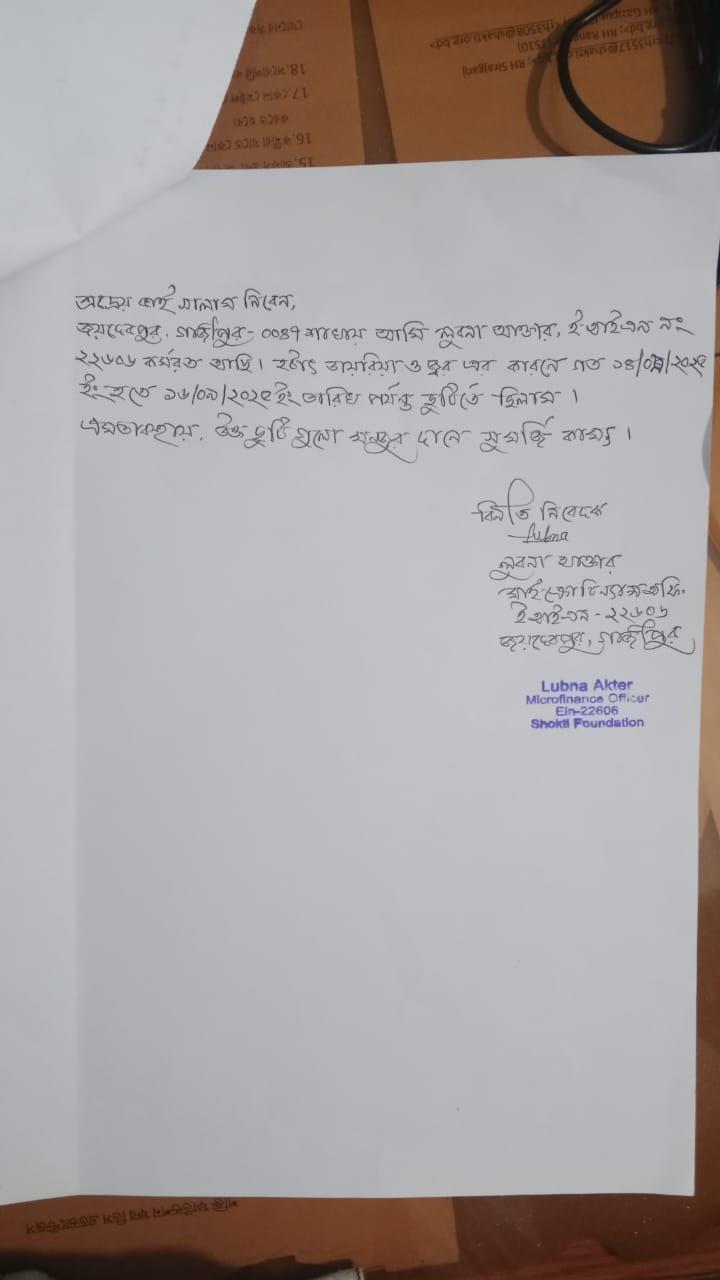 শ্রদ্ধেয় ভাই সালাম নিবেন,
জয়দেবপুর, গাজীপুর- 0089 শাখায় আমি লুবনা আক্তার, ইআইএন নং
২২৬০৬ কর্মরত আছি। হঠাৎ ডায়রিয়া ও জ্বর এর কারনে গত ১৪/০৯/২০২৫
ইং হতে ১৬/০৯/২০২৫ ইং তারিখ পর্যন্ত ছুটিতে ছিলাম।
এমতাবস্থায়, উক্ত ছুটি গুলো মঞ্জুর দানে সুমর্জি কাম্য।
বিনীত নিবেদক
Lubna
লুবনা আক্তার
ইআইএন - ২২৬০৬
জয়দেবপুর, গাজীপুর
Lubna Akter
Microfinance Officer
Ein-22606
Shokti Foundation